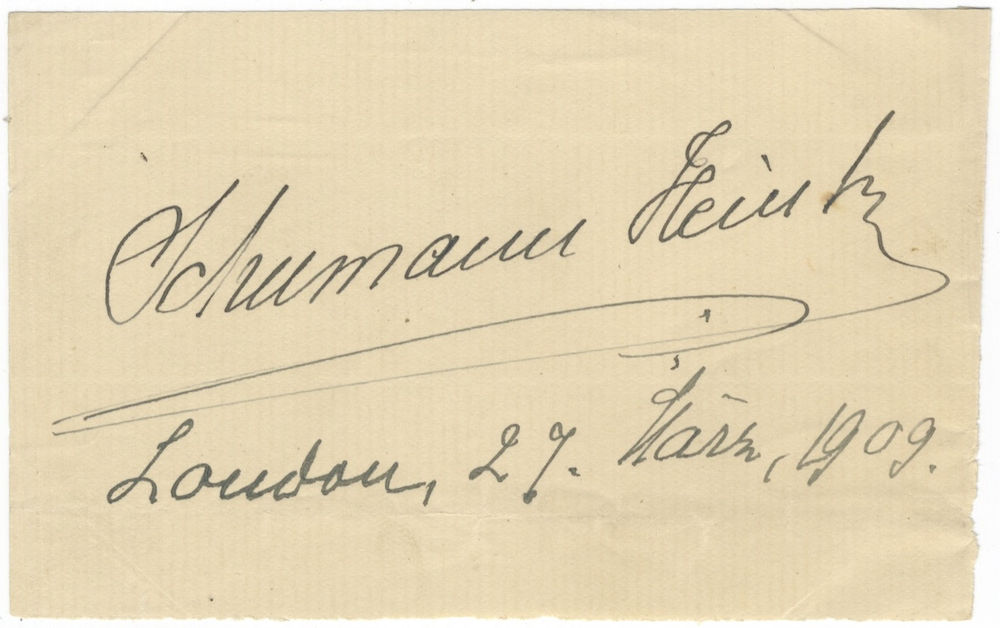 Schumann Heink
London, 27. März, 1909.